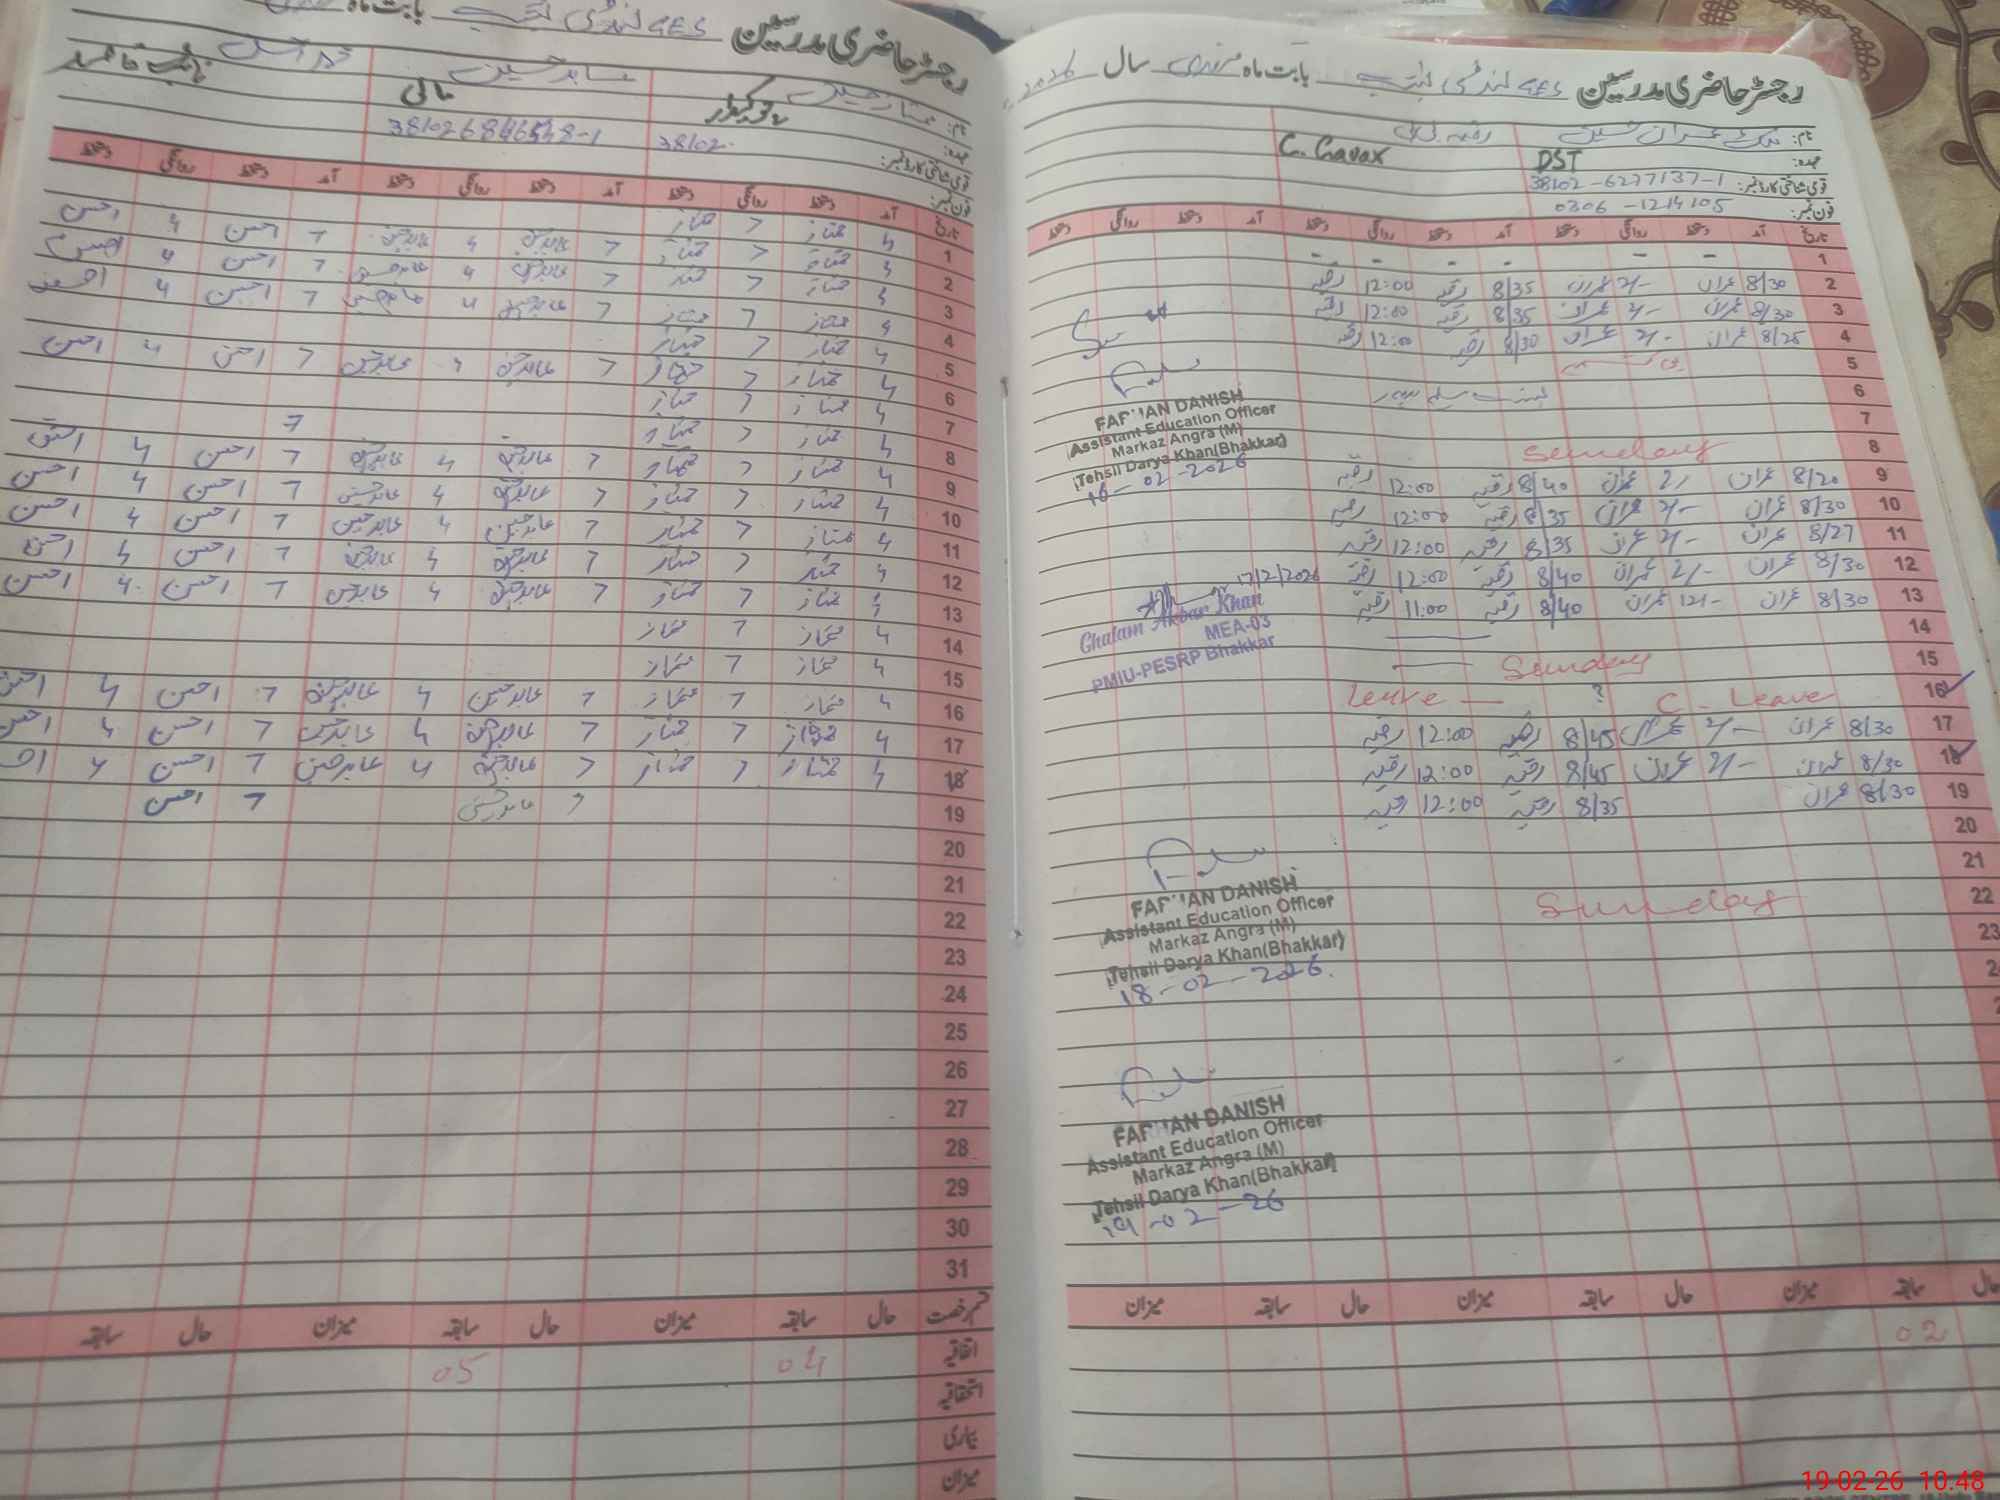 رجسٹر حاضری مدرسین GES بابت ماہ
نام: ممتاز حسین عابد حسین
عہدہ: چوکیدار مالی نائب قاصد
قومی شناختی کارڈ نمبر: 38102-
فون نمبر:
تاریخ آمد دستخط روانگی دستخط آمد دستخط روانگی دستخط آمد دستخط روانگی دستخط
1 4 ممتاز 7 ممتاز 7 عابد حسین 4 عابد حسین 7 احسن 4 احسن
2 4 ممتاز 7 ممتاز 7 عابد حسین 4 عابد حسین 7 احسن 4 احسن
3 4 ممتاز 7 ممتاز 7 عابد حسین 4 عابد حسین 7 احسن 4 احسن
4 4 ممتاز 7 ممتاز
5 4 ممتاز 7 ممتاز 7 عابد حسین 4 عابد حسین 7 احسن 4 احسن
6 4 ممتاز 7 ممتاز
7 4 ممتاز 7 ممتاز 7
8 4 ممتاز 7 ممتاز 7 عابد حسین 4 عابد حسین 7 احسن 4 احسن
9 4 ممتاز 7 ممتاز 7 عابد حسین 4 عابد حسین 7 احسن 4 احسن
10 4 ممتاز 7 ممتاز 7 عابد حسین 4 عابد حسین 7 احسن 4 احسن
11 4 ممتاز 7 ممتاز 7 عابد حسین 4 عابد حسین 7 احسن 4 احسن
12 4 ممتاز 7 ممتاز 7 عابد حسین 4 عابد حسین 7 احسن 4 احسن
13 4 ممتاز 7 ممتاز
14 4 ممتاز 7 ممتاز
15 4 ممتاز 7 ممتاز 7 عابد حسین 4 عابد حسین 7 احسن 4 احسن
16 4 ممتاز 7 ممتاز 7 عابد حسین 4 عابد حسین 7 احسن 4 احسن
17 4 ممتاز 7 ممتاز 7 عابد حسین 4 عابد حسین 7 احسن 4
18 7 عابد حسین 7 احسن
19
20
21
22
23
24
25
26
27
28
29
30
31
قسم رخصت حال سابقہ میزان حال سابقہ میزان حال سابقہ
اتفاقیہ 04 05
استحقاقیہ
بیماری
میزان
رجسٹر حاضری مدرسین GES بابت ماہ فروری سال 2026
نام: ملک عمران حسین رقیہ بی بی
عہدہ: DST C. Gavax
قومی شناختی کارڈ نمبر: 38102-6277137-1
فون نمبر: 0306-1214105
تاریخ آمد دستخط روانگی دستخط آمد دستخط روانگی دستخط آمد دستخط روانگی دستخط
1 - - - - - -
2 8/30 عمران 2/- عمران 8/35 رقیہ 12:00 رقیہ
3 8/30 عمران 2/- عمران 8/35 رقیہ 12:00 رقیہ
4 8/25 عمران 2/- عمران 8/30 رقیہ 12:00 رقیہ
5
6
7
8 Sunday
9 8/20 عمران 2/ عمران 8/40 رقیہ 12:00 رقیہ
10 8/30 عمران 2/- عمران 8/35 رقیہ 12:00 رقیہ
11 8/27 عمران 2/- عمران 8/35 رقیہ 12:00 رقیہ
12 8/30 عمران 2/- عمران 8/40 رقیہ 12:00 رقیہ
13 8/30 عمران 12/- عمران 8/40 رقیہ 11:00 رقیہ
14
15 Sunday
16 C - Leave ? leave
17 8/30 عمران 2/- عمران 8/45 رقیہ 12:00 رقیہ
18 8/30 عمران 2/- عمران 8/45 رقیہ 12:00 رقیہ
19 8/30 عمران 8/35 رقیہ 12:00 رقیہ
20
21
22 Sunday
23
FAR AN DANISH
Assistant Education Officer
Markaz Angra (M)
Tehsil Darya Khan(Bhakkar)
16-02-2026
17/2/2026
Ghulam Akbar Khan
MEA-03
PMIU-PESRP Bhakkar
FAR AN DANISH
Assistant Education Officer
Markaz Angra (M)
Tehsil Darya Khan(Bhakkar)
18-02-2026.
FAR AN DANISH
Assistant Education Officer
Markaz Angra (M)
Tehsil Darya Khan(Bhakkar)
19-02-26
حال سابقہ میزان حال سابقہ میزان حال سابقہ میزان
02
19-02-26 10:48